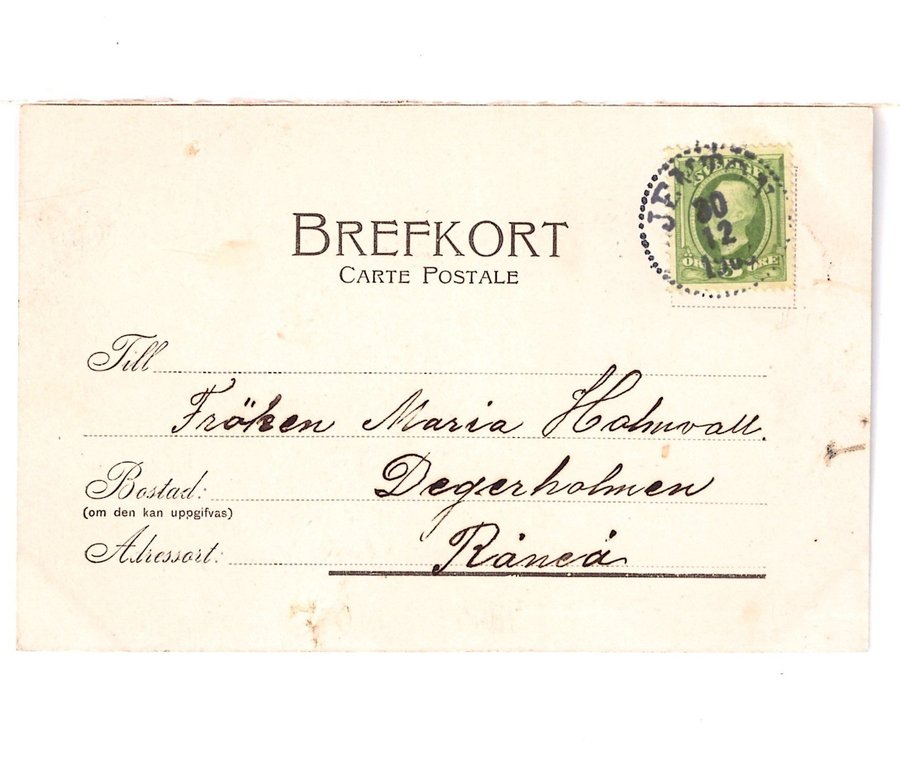 BREFKORT
CARTE POSTALE
30
12
ÖRE
Till
Fröken Maria Holmvall.
Bostad: Degerholmen
(om den kan uppgifvas)
Adressort: Råneå